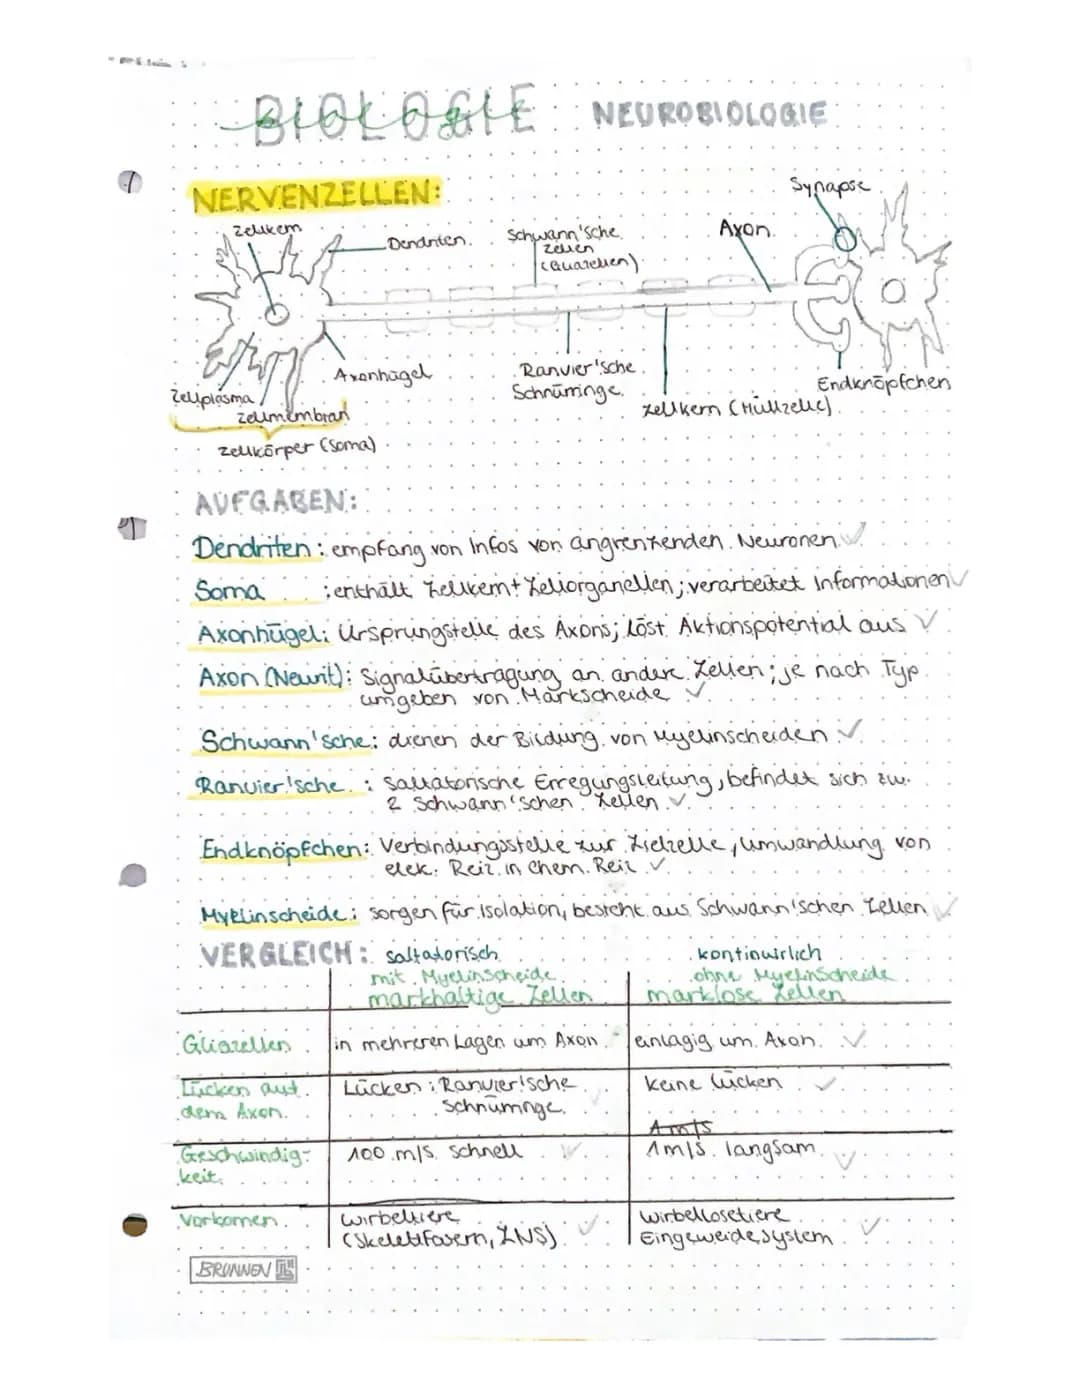 BIOLOGIE
biologie
NEUROBIOLOGIE
NERVENZELLEN:
Synapse
Zellkern
Dendriten
Schwann'sche
Zellen
(Gliazellen)
Axon
Axonhügel
Ranvier'sche
Schnürringe
Zellkern (Hüllzelle)
Endknöpfchen
Zellplasma
Zellmembran
Zellkörper (Soma)
AUFGABEN:
Dendriten: empfang von Infos von angrenzenden Neuronen ✓
Soma : enthält Zellkern + Zellorganellen; verarbeitet Informationen ✓
Axonhügel: Ursprungstelle des Axons; löst Aktionspotential aus ✓
Axon (Neurit): Signalübertragung an andere Zellen; je nach Typ
umgeben von Markscheide ✓
Schwann'sche: dienen der Bildung von Myelinscheiden ✓
Ranvier'sche : Saltatorische Erregungsleitung, befindet sich zw.
2 Schwann'schen Zellen ✓
Endknöpfchen: Verbindungsstelle zur Zielzelle, Umwandlung von
elek. Reiz in chem. Reiz ✓
Myelinscheide: sorgen für Isolation, besteht aus Schwann'schen Zellen ✓
VERGLEICH: saltatorisch kontinuirlich
mit Myelinscheide ohne Myelinscheide
markhaltige Zellen marklose Zellen
Gliazellen in mehreren Lagen um Axon einlagig um Axon ✓
Lücken auf Lücken: Ranvier'sche keine Lücken ✓
dem Axon Schnürringe ✓
1 m/s
Geschwindig- 100 m/s schnell ✓ 1m/s langsam ✓
keit
Vorkomen wirbeltiere wirbellosetiere
(Skelettfasern, ZNS) ✓ Eingeweidesystem ✓
BRUNNEN